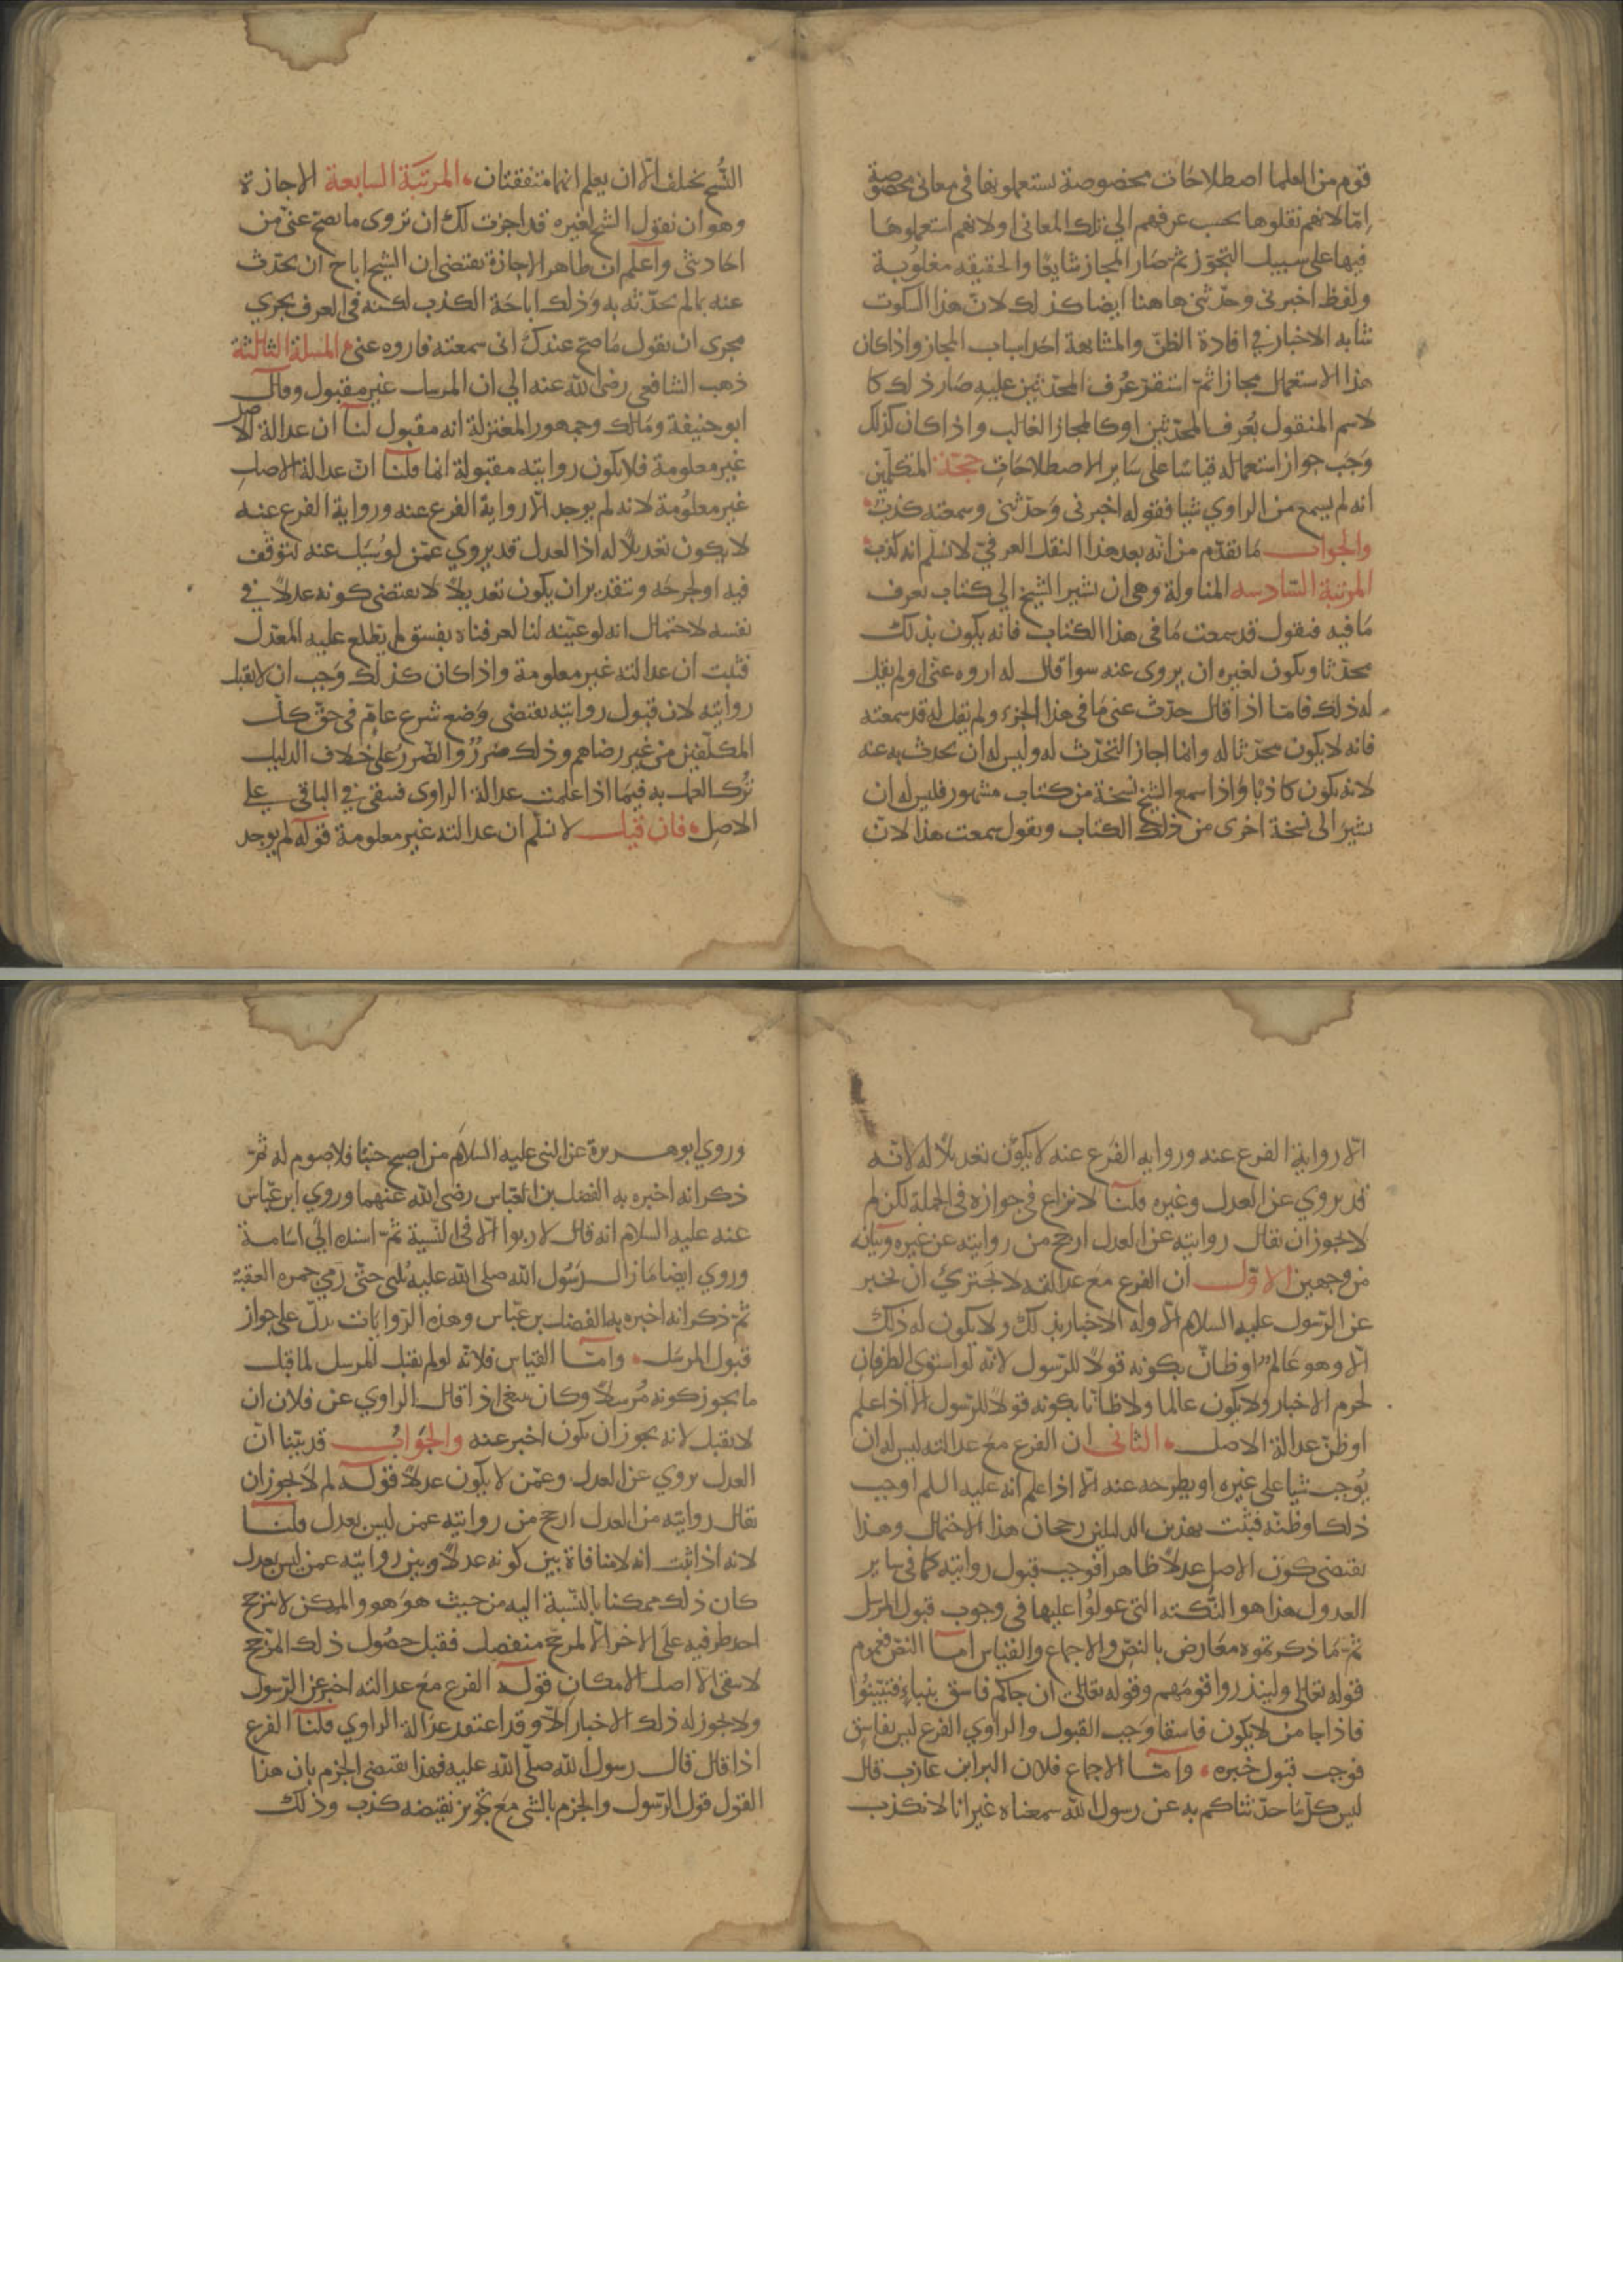 قوم من العلما اصطلاحات مخصوصة يستعملونها في معاني مخصوصة
إمّا لانهم نقلوها بحسب عرفهم الي تلك المعاني او لانهم استعملوها
فيها على سبيل التجوّز ثم صار المجاز شايعًا والحقيقه مغلوبة
ولفظ اخبرني وحدّثني هاهنا ايضا كذلك لانّ هذا السكوت
شابه الاخبار في افادة الظنّ والمشابهة احد اسباب المجاز واذا كان
هذا الاستعمال مجازا ثمّ استقرّ عُرف المحدّثين عليه صار ذلك كا
لاسم المنقول بعُرف المحدّثين او كالمجاز الغالب واذا كان كذلك
وَجَب جواز استعماله قياسًا على سَاير الاصطلاحَاتِ حجّة المتكلّمين
انه لم يسمع من الراوي شيا فقوله اخبرني وَحَدّثني وسمعته كذبٌ
والجواب مَا تقدّم من انّه بعد هذا النقل العرفيّ لا نسلّم انه كذب
المرتبة السّادسه المناولة وهي ان يشير الشيخ الي كتاب يعرف
مَا فيه فيقول قد سمعت مَا في هذا الكتاب فانه يكون بذلك
محدّثا ويكون لغيره ان يروي عنه سوا قال له اروه عنّى او لم يقل
له ذلك فامّا اذا قال حدّث عني مَا في هذا الجزء ولم يقل له قد سمعته
فانه لا يكون محدّثا له وانما اجاز التحدّث له وليس له ان يحدث به عنه
لانه يكون كاذبًا وَاذا سمع الشيخ نسخة من كتاب مشهور فليس له ان
يشيرَ الى نسخة اخرى من ذلك الكتاب ويقول سمعت هذا لانّ
النُّسخ تختلف الّا ان يعلم انهما متفقتان المرتبَة السّابعة الاجازة
وهو ان يقول الشيخ لغيره قد اجزت لك ان تروى ما يصحّ عنّي من
احَاديثى وَاعلم ان ظاهر الاجازة يقتضى ان الشيخ اباح ان يحدّث
عنه بما لم يحدّثه به وَذلك اباحَة الكذب لكنه في العرف يجري
مجرى ان يقول مَا صحّ عندك انى سمعته فاروه عني المسلة الثالثة
ذهب الشافعي رضي الله عنه الي ان المرسل غير مقبول وقال
ابو حنيفة ومَالك وجمهور المعتزلة انه مقبول لنا ان عدالة الاصل
غير معلومة فلا يكون روايته مقبولة انما قلنا انّ عدالة الاصل
غير معلُومة لانه لم يوجد الّا رواية الفرع عنه ورواية الفرع عنه
لا يكون تعديلًا له اذ العدل قد يروي عمّن لو سُيل عنه لتوقّف
فيه او لجرحَه وبتقدير ان يكون تعديلًا لا يقتضى كونه عدلًا في
نفسه لاحتمال انه لو عيّنه لنا لعرفناه بفسق لم يطلع عليه المعدّل
فثبت ان عدالته غير معلومة واذا كان كذلك وَجب ان لا يقبل
روايته لان قبول روايته يقتضى وَضع شرع عامّ فى حقّ كلّ
المكلّفين من غير رضاهم وذلك ضررٌ والضّرر على خلاف الدليل
تُرك العمل به فيما اذا علمت عدالة الراوى فبقى في الباقي على
الاصلِ فان قيل لا نسلّم ان عدالته غير معلومة قوله لم يوجد
الّا رواية الفرع عنه وروايه الفرَع عنه لا يكون تعديلًا له لانّه
قد يروي عن العدل وغيره قلنا لا نزاع في جوازه في الجملة لكن لم
لا يجوز ان يقال روايته عن العدل ارجح من روايته عن غيره وبيانه
من وجهين الاوّل ان الفرع مَع عدالته لا يَجتريُ ان يخبر
عن الرّسول عليه السلام الّا وله الاخبار بذلك ولا يكون له ذلك
الّا وهو عَالم او ظانّ بكونه قولًا للرّسول لانّه لو استوى الطرفان
لحرم الاخبار ولا يكون عالما ولا ظانّا بكونه قولًا للرّسول الّا اذا علم
او ظنّ عدالة الاصل الثاني ان الفرع مَع عدالته ليس له ان
يُوجب شيا على غيره او يطرحه عنه الّا اذا علم انه عليه السلم اوجب
ذلك او ظنّه فثبت بهذين الدليلين رجحان هذا الاحتمال وهذا
يقتضى كون الاصل عدلًا ظاهرا فوجب قبول روايته كما في ساير
العدول هذا هو النّكته التى عولُوا عليها في وجوب قبول المرسل
ثمّ مَا ذكرتموه معَارض بالنصّ والاجماع والقياس امّا النصّ فعموم
قوله تعالى ولينذروا قومَهم وقوله تعالى ان جاكم فاسق بنباءٍ فتبيّنُوا
فاذا جا من لا يكون فاسقا وَجب القبول والراوي الفرع ليس بفاسق
فوجب قبول خبره وامّا الاجماع فلان البرا بن عازب قال
ليس كلّ مَا حدّثناكم به عن رسول الله سمعناه غير انا لا نكذب
وروي ابو هريرة عن النبي عليه السّلام من اصبح جنبًا فلا صوم له ثمّ
ذكر انه اخبره به الفضل بن العبّاس رضي الله عنهما وروي ابن عبّاس
عنه عليه السلام انه قال لا ربوا الّا في النّسية ثمّ اسنده الي اسَامة
وروي ايضا مَا زال رسُول الله صلى الله عليه يُلبّي حتّى رَمي جمره العقبه
ثمّ ذكر انه اخبره به الفضل بن عبّاس وهذه الرّوايات يدلّ على جواز
قبول المرسَل وامّا القياس فلانّه لو لم يقبل المرسل لما قبل
ما يجوز كونه مُرسلًا وكان ينبغي اذا قال الراوي عن فلان ان
لا يقبل لانه يجوز ان يكون اخبر عنه والجَوابُ قد بيّنا انّ
العدل يروي عن العدل وعمّن لا يكون عدلًا قوله لم لا يجوز ان
يقال روايته من العدل ارجح من روايته عمن ليس بعدل قلنا
لانه اذا ثبت انه لا منافاة بين كونه عدلًا وبين روايته عمن ليس بعدل
كان ذلك ممكنا بالنّسبة اليه من حيث هوَ هو والممكن لا يترجح
احد طرفيه على الاخر الّا لمرجّح منفصل فقبل حصُول ذلك المرّجح
لا يبقى الا اصل الامكان قوله الفرع مَع عدالته اخبر عن الرّسول
ولا يجوز له ذلك الاخبار الّا وقد اعتقد عدَالة الراوي قلنا الفرع
اذا قال قال رسول الله صلّى الله عليه فهذا يقتضى الجزم بان هذا
القول قول الرّسول والجزم بالشي مَع تجويز نقيضه كذب وذلك